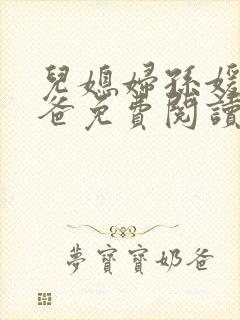 兒媳婦孫媛
爸免費閱讀
夢寶寶奶爸